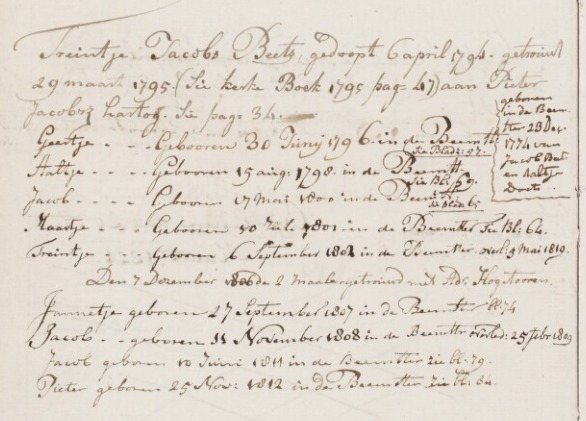 Treintje Jacobs Beets gedoopt 6 april 1794 - getrouwt
29 maart 1795 (Sie kerke Boek 1795 pag= 47) aan Pieter
Jacobsz hartog. Sie pag= 34.
geboren
in de Beem-
ster 23 Dec.
1774 van
Jacob Beets
en Aaltje
Geertje - - - Gebooren 30 Junij 1796. in de Beemstr
Sie Bladz: 57.
Aaltje - - - Gebooren 15 aug: 1798. in de Beemstr.
Sie Bl: 59.
Jacob - - - Gebooren 17 mai 1800 in de Beemster
Maartje - - - Gebooren 10 Juli 1801 in de Beemster Sie Bl: 64.
Treintje - - - Geboren 6 September 1802 in de Beemster. overl: 9 Mai 1819.
Den 7 Dezember 1806 de 2 Maal getrouwd met Ads Hogetooren.
Jannetje geboren 27 September 1807 in de Beemster bl: 74
Jacob - - geboren 11 November 1808 in de Beemster overled: 25 febr 1809
Jacob geboren 10 Junij 1811 in de Beemster zie bl: 79.
Pieter geboren 25 Nov: 1812 in de Beemster zie bl: 84.